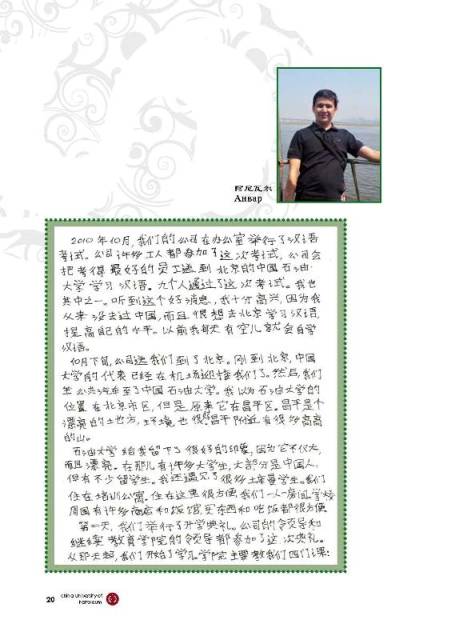 阿尼瓦尔
Анвар
2010年10月,我们的公司在办公室举行了汉语
考试。公司许多工人都参加了这次考试。公司会
把考得最好的员工送到北京的中国石油
大学学习汉语。九个人通过了这次考试。我也
其中之一。听到这个好消息,我十分高兴,因为我
从来没去过中国,而且很想去北京学习汉语,
提高自己的水平。以前我每天有空儿就会自学
汉语。
10月下旬,公司送我们到了北京。刚到北京,中国
大学的代表已经在机场迎接我们了。然后,我们
坐公共汽车至了中国石油大学。我以为石油大学的
位置在北京市区,但是原来它在昌平区。昌平是个
漂亮的地方,环境也很。昌平附近有很多高高
的山。
石油大学给我留下了很好的印象,因为它不仅大,
而且漂亮。在那儿有许多大学生,大部分是中国人,
但有不少留学生。我还遇见了很多土库曼学生。我们
住在培训公寓。住在这里很方便我们一人一房间,学校
周围有许多商店和饭馆,买东西和吃饭都很方便
第一天,我们举行了开学典礼。公司的领导和
继续教育学院的领导都参加了这次典礼。
从那天起,我们开始了学习学院主要教我们四门课:
20 China University of Petroleum